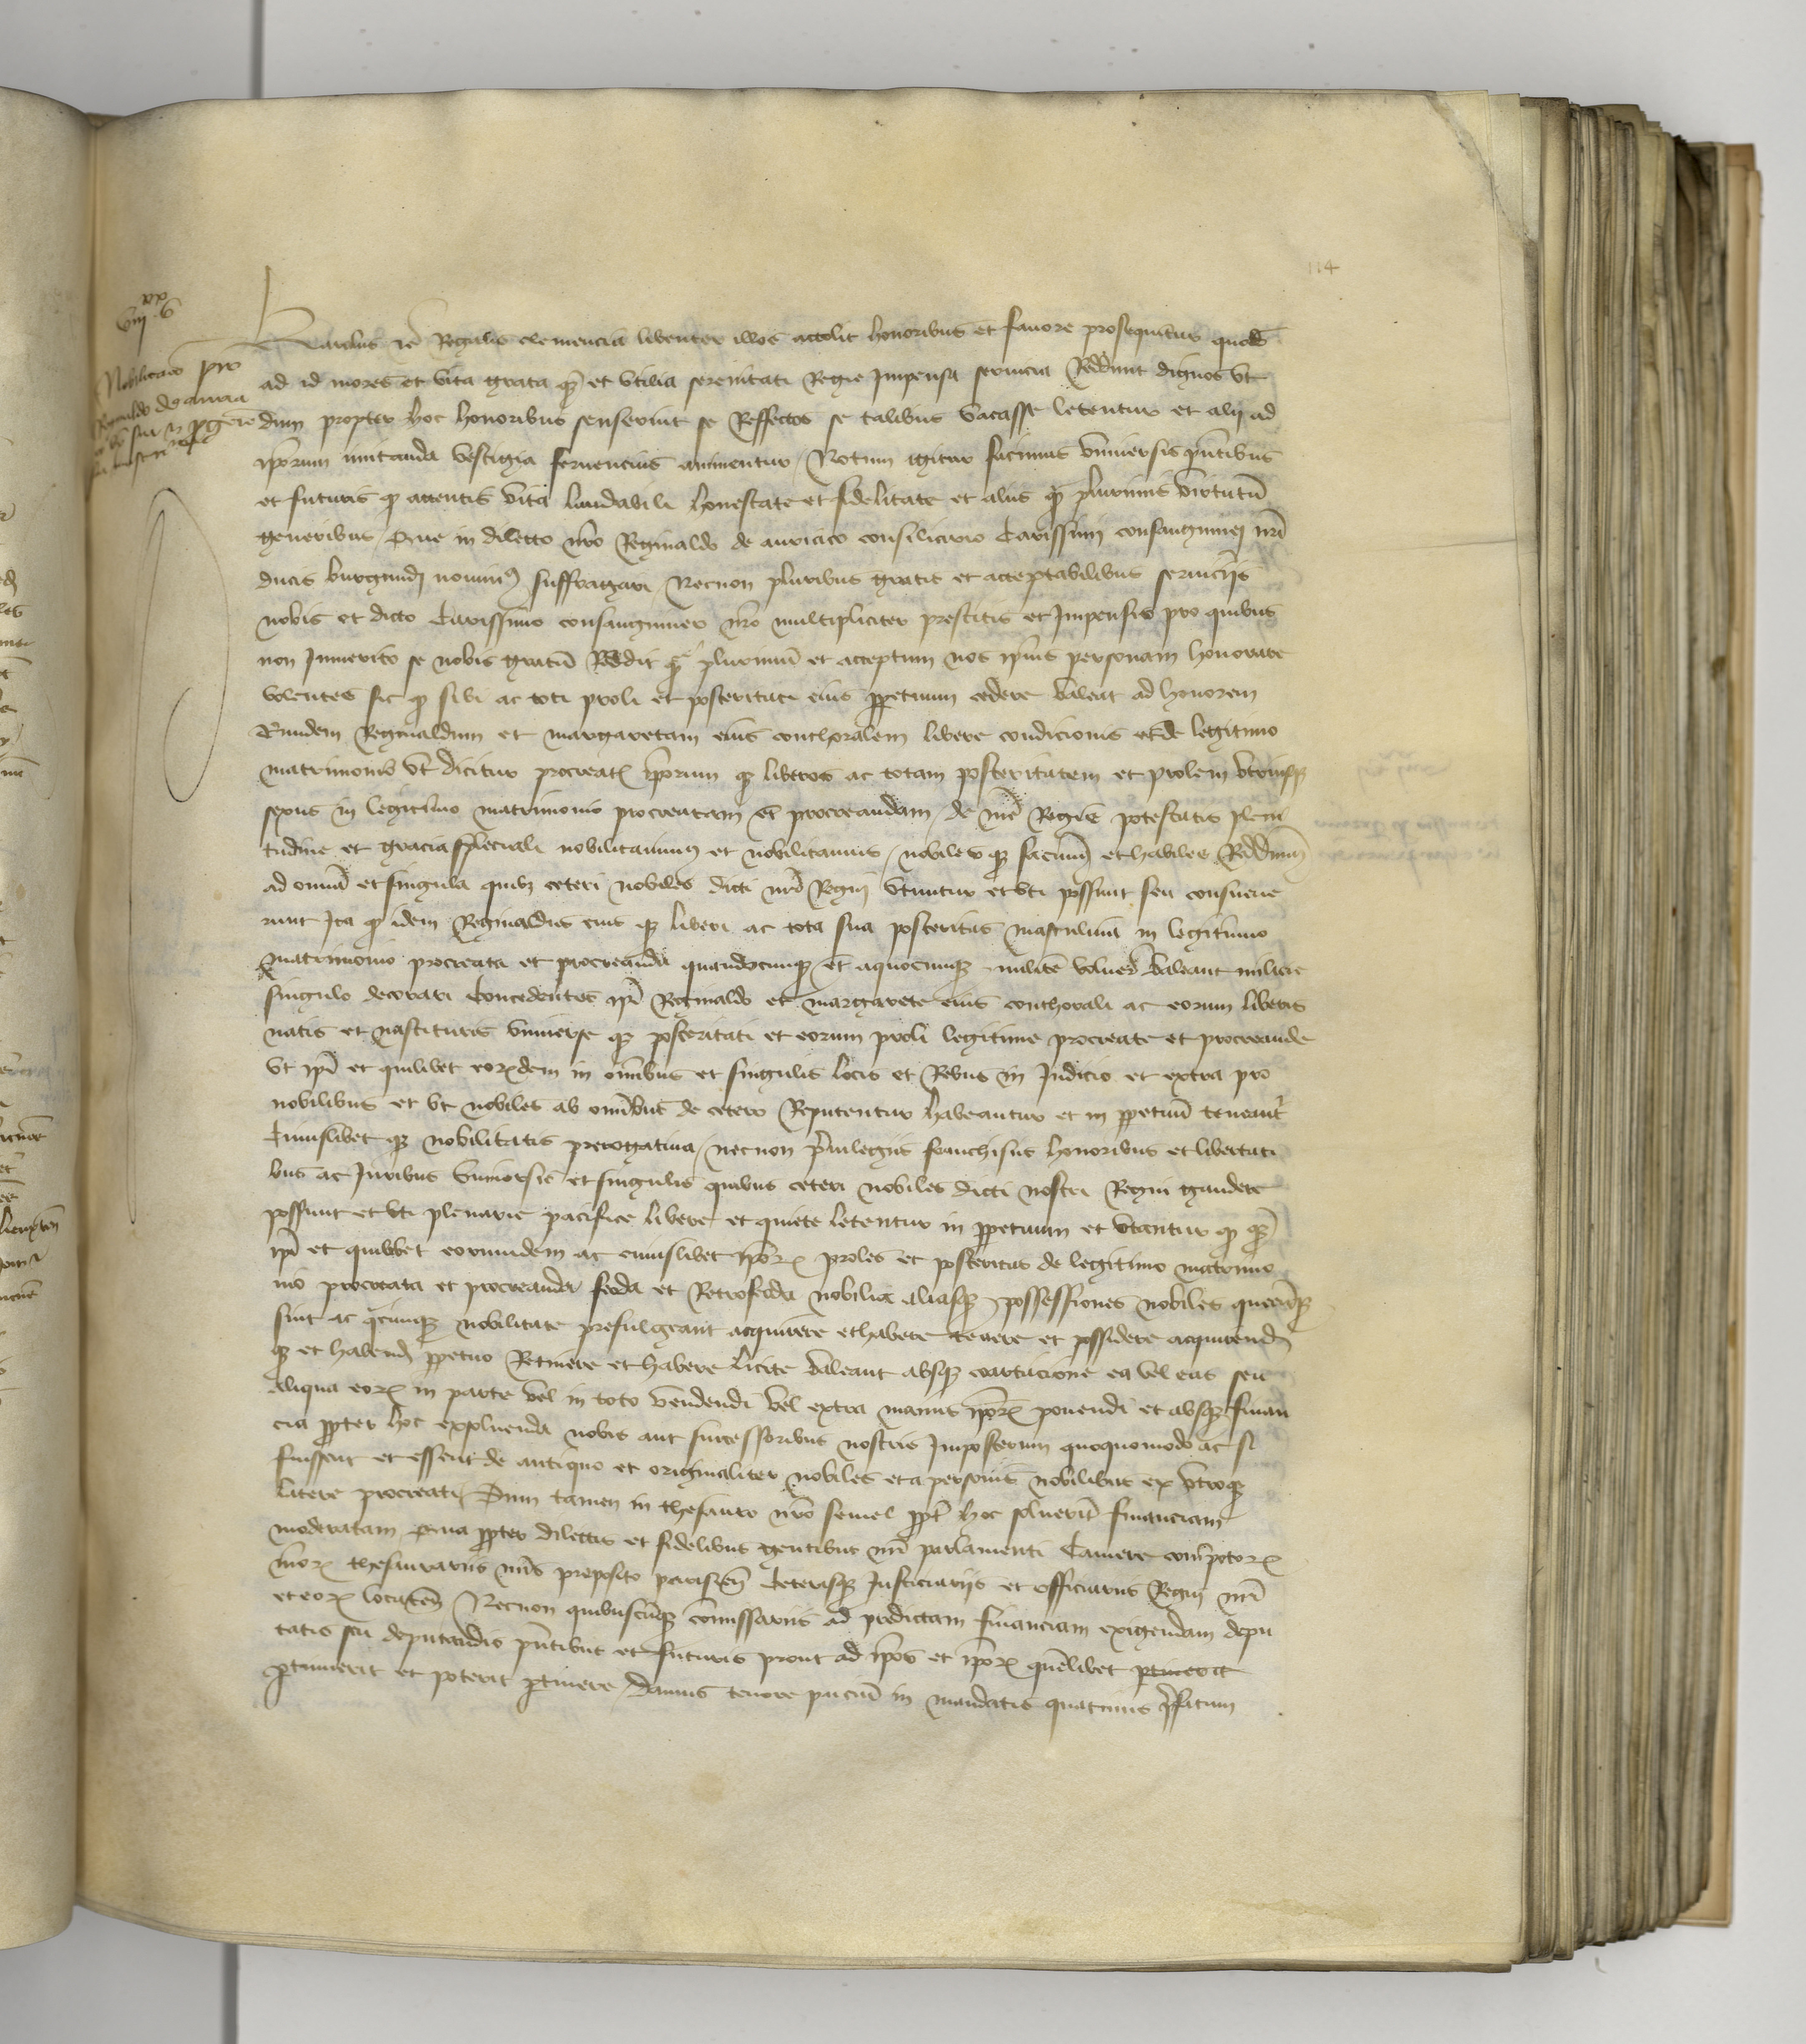 114
viii xx v
Nobilitacio pro
Karolus etc Regalis clemencia libenter illos attolit honoribus et favore prosequitur quos
ad id mores et vita grata qz et utilia serenitati Regie Impensa servicia Reddunt dignos ut
dum propter hoc honoribus senserint se Reffectos se talibus vacasse letentur et alij ad
iporum imitanda vestigia fervencius animentur / Notum igitur facimus universis pntibus
et futuris qz attentis vita laudabili honestate et fidelitate et aliis qz plurimis virtutum
generibus que in dilecto nro Reginaldo de auricico consiliario Carissimi consanguinej nri
ducis burgundj novimus suffragari / Necnon pluribus gratis et acceptabilibus serviciis
nobis et dicto Carissimo consanguineo nro multipliciter prestitis et Impensis pro quibus
non Immerito se nobis gratum Reddit qz plurimum et acceptum nos ipius personam honorare
volentes sic qz sibi ac toti proli et posteritati eius ppetuum cedere valeat ad honorem
Eundem Reginaldum et margaretam eius conthoralem libere condicionis et de legitimo
matrimonio ut dicitur procreatos iporum qz liberos ac totam posteritatem et prolem utriusqz
sexus in legitimo matrimonio procreatam et procreandam / de nre Regie potestatis pleni
tudine et gracia speciali nobilitavimus et nobilitamus / nobiles qz facimus et habiles Reddimus
ad omnia et singula quibz ceteri nobiles dicti nri Regni utuntur et uti possunt seu consueve
runt Ita qz idem Reginaldus eius qz liberi ac tota sua posteritas masculina in legitimo
matrimonio procreata et procreanda quandocunqz et a quocunqz milite voluerint valeant milicie
singulo decorari Concedentes ipi Reginaldo et margarete eius conthorali ac eorum liberis
natis et nascituris universe qz posteritati et eorum proli legitime procreate et procreande
ut ipi et quilibet eorumdem in omibus et singulis locis et Rebus in Judicio et extra pro
nobilibus et ut nobiles ab omibus de cetero Reputentur habeantur et in ppetuum teneantur
Cuiuslibet qz nobilitatis prerogativa / necnon privilegiis franchisiis honoribus et libertati
bus ac Juribus universis et singulis quibus ceteri nobiles dicti nostri Regni gaudere
possunt et uti plenarie pacifice libere et quiete letentur in ppetuum et utantur qz qz
ipi et quilibet eorumdem ac cuiuslibet ipor proles et posteritas de legitimo matrimo
nio procreata et procreanda feoda et Retrofeoda nobilia aliasqz possessiones nobiles quecunqz
sint ac quacunqz nobilitate prefulgeant acquirere et habere tenere et possidere acquirendas
qz et habendas ppetuo Retinere et habere licite valeant absqz coartacione ea vel eas seu
aliqua eor in parte vel in toto vendendi vel extra manus ipor ponendi et absqz finan
cia ppter hoc exsolvenda nobis aut successoribus nostris Imposterum quoquomodo ac si
fuissent et essent de antiquo et originaliter nobiles et a personis nobilibus ex utroqz
latere procreati / Dum tamen in thesauro nro semel ppter hoc solverint financiam
moderatam Qua ppter dilectis et fidelibus gentibus nri parlamenti Camere compotor
nror thesaurariis nris preposito parisien Ceterisqz Justiciarijs et officiariis Regni nri
et eor locaten / Necnon quibuscunqz comissariis ad predictam financiam exigendam depu
tatis seu deputandis pntibus et futuris prout ad ipos et ipor quemlibet ptinerit
ptinuerit et poterit ptinere / Damus tenore pncium in mandatis quatinus prefatum